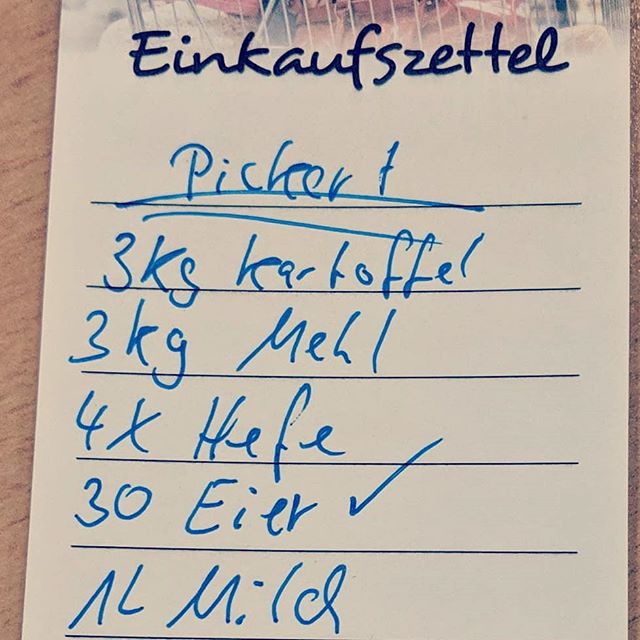 Einkaufszettel
Pickert
3kg Kartoffel
3kg Mehl
4x Hefe
30 Eier ✓
1L Milch